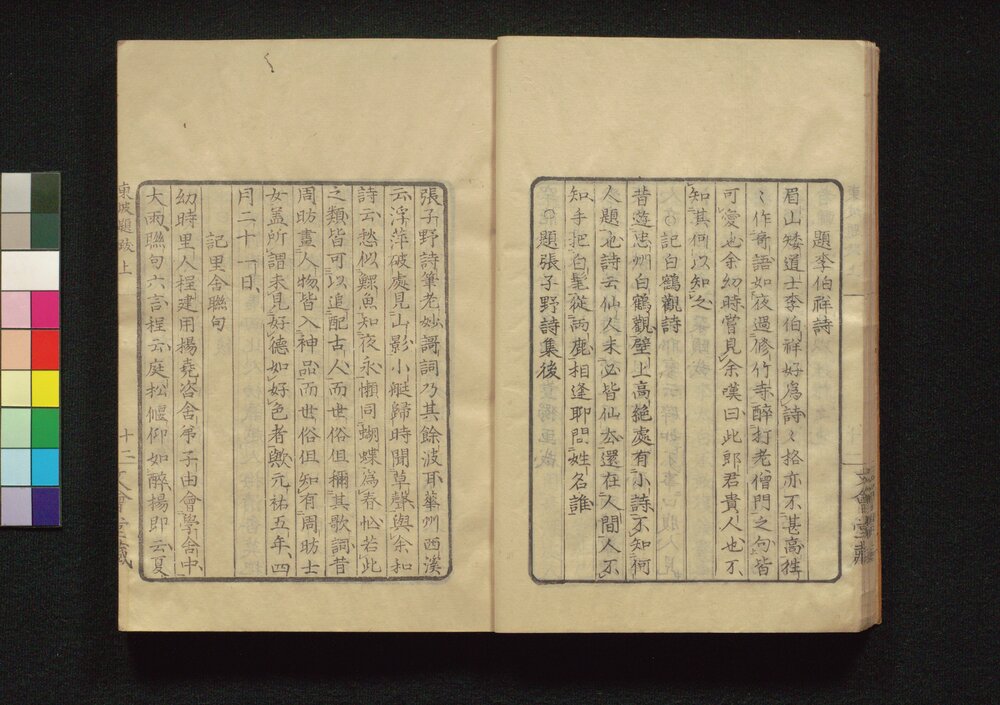 題李伯祥詩
眉山矮道士李伯祥好爲詩〻格亦不甚高往
〻作奇語如夜過修竹寺醉打老僧門之句皆
可愛也余幼時嘗見余嘆曰此郎君貴人也不
知其何以知之
記白鶴觀詩
昔遊忠州白鶴觀壁上高絶處有小詩不知何
人題也詩云仙人未必皆仙去還在人間人不
知手把白髦從两鹿相逢聊問姓名誰
題張子野詩集後
張子野詩筆老妙謌詞乃其餘波耳華州西溪
云浮萍破處見山影小艇歸時聞草聲與余和
詩云愁似鰥魚知夜永懶同蝴蝶爲春忙若此
之類皆可以追配古人而世俗但稱其歌詞昔
周昉畫人物皆入神品而世俗但知有周昉士
女盖所謂未見好德如好色者歟元祐五年四
月二十一日
記里舍聯句
幼時里人程建用楊堯咨舍弟子由會學舍中
大雨聯句六言程云庭松偃仰如醉楊即云夏
東坡題跋上
十二
文會堂藏